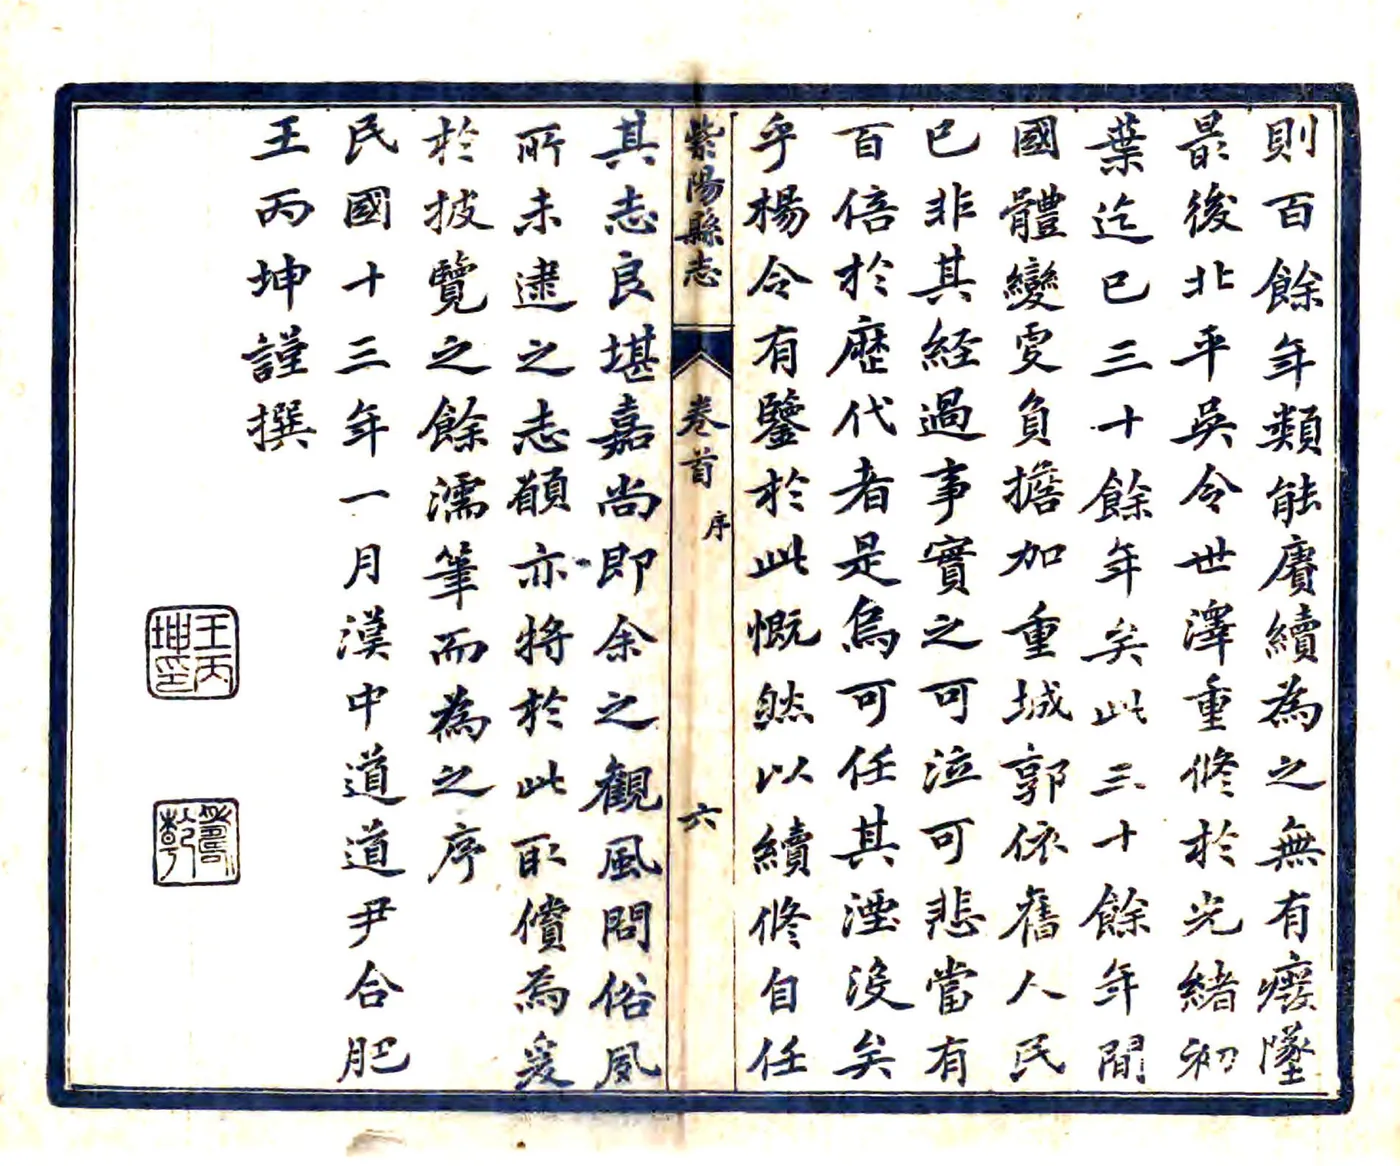 則百餘年類能賡續為之無有癈墜
最後北平吳令世澤重修於光緒初
葉迄已三十餘年矣此三十餘年間
國體變更負擔加重城郭依舊人民
已非其經過事實之可泣可悲當有
百倍於歷代者是烏可任其湮沒矣
乎楊令有鑒於此慨然以續修自任
紫陽縣志
卷首
序
六
其志良堪嘉尚即余之觀風問俗夙
所未逮之志願亦將於此取償焉爰
於披覽之餘濡筆而為之序
民國十三年一月漢中道道尹合肥
王丙坤謹撰
王丙坤印